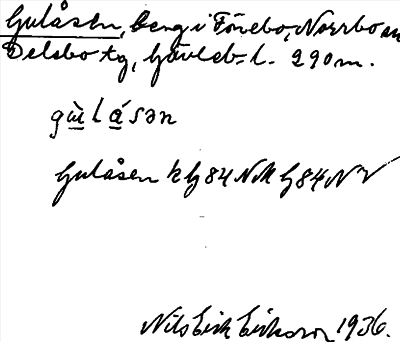 Gulåsen, berg i Fönebo, Norrbo sn
Delsbo tg, Gävleb. l. 290 m.
gùlásən
Gulåsen k bg 84 NM bg 84 NV
Nils Erik Eriksson 1936.